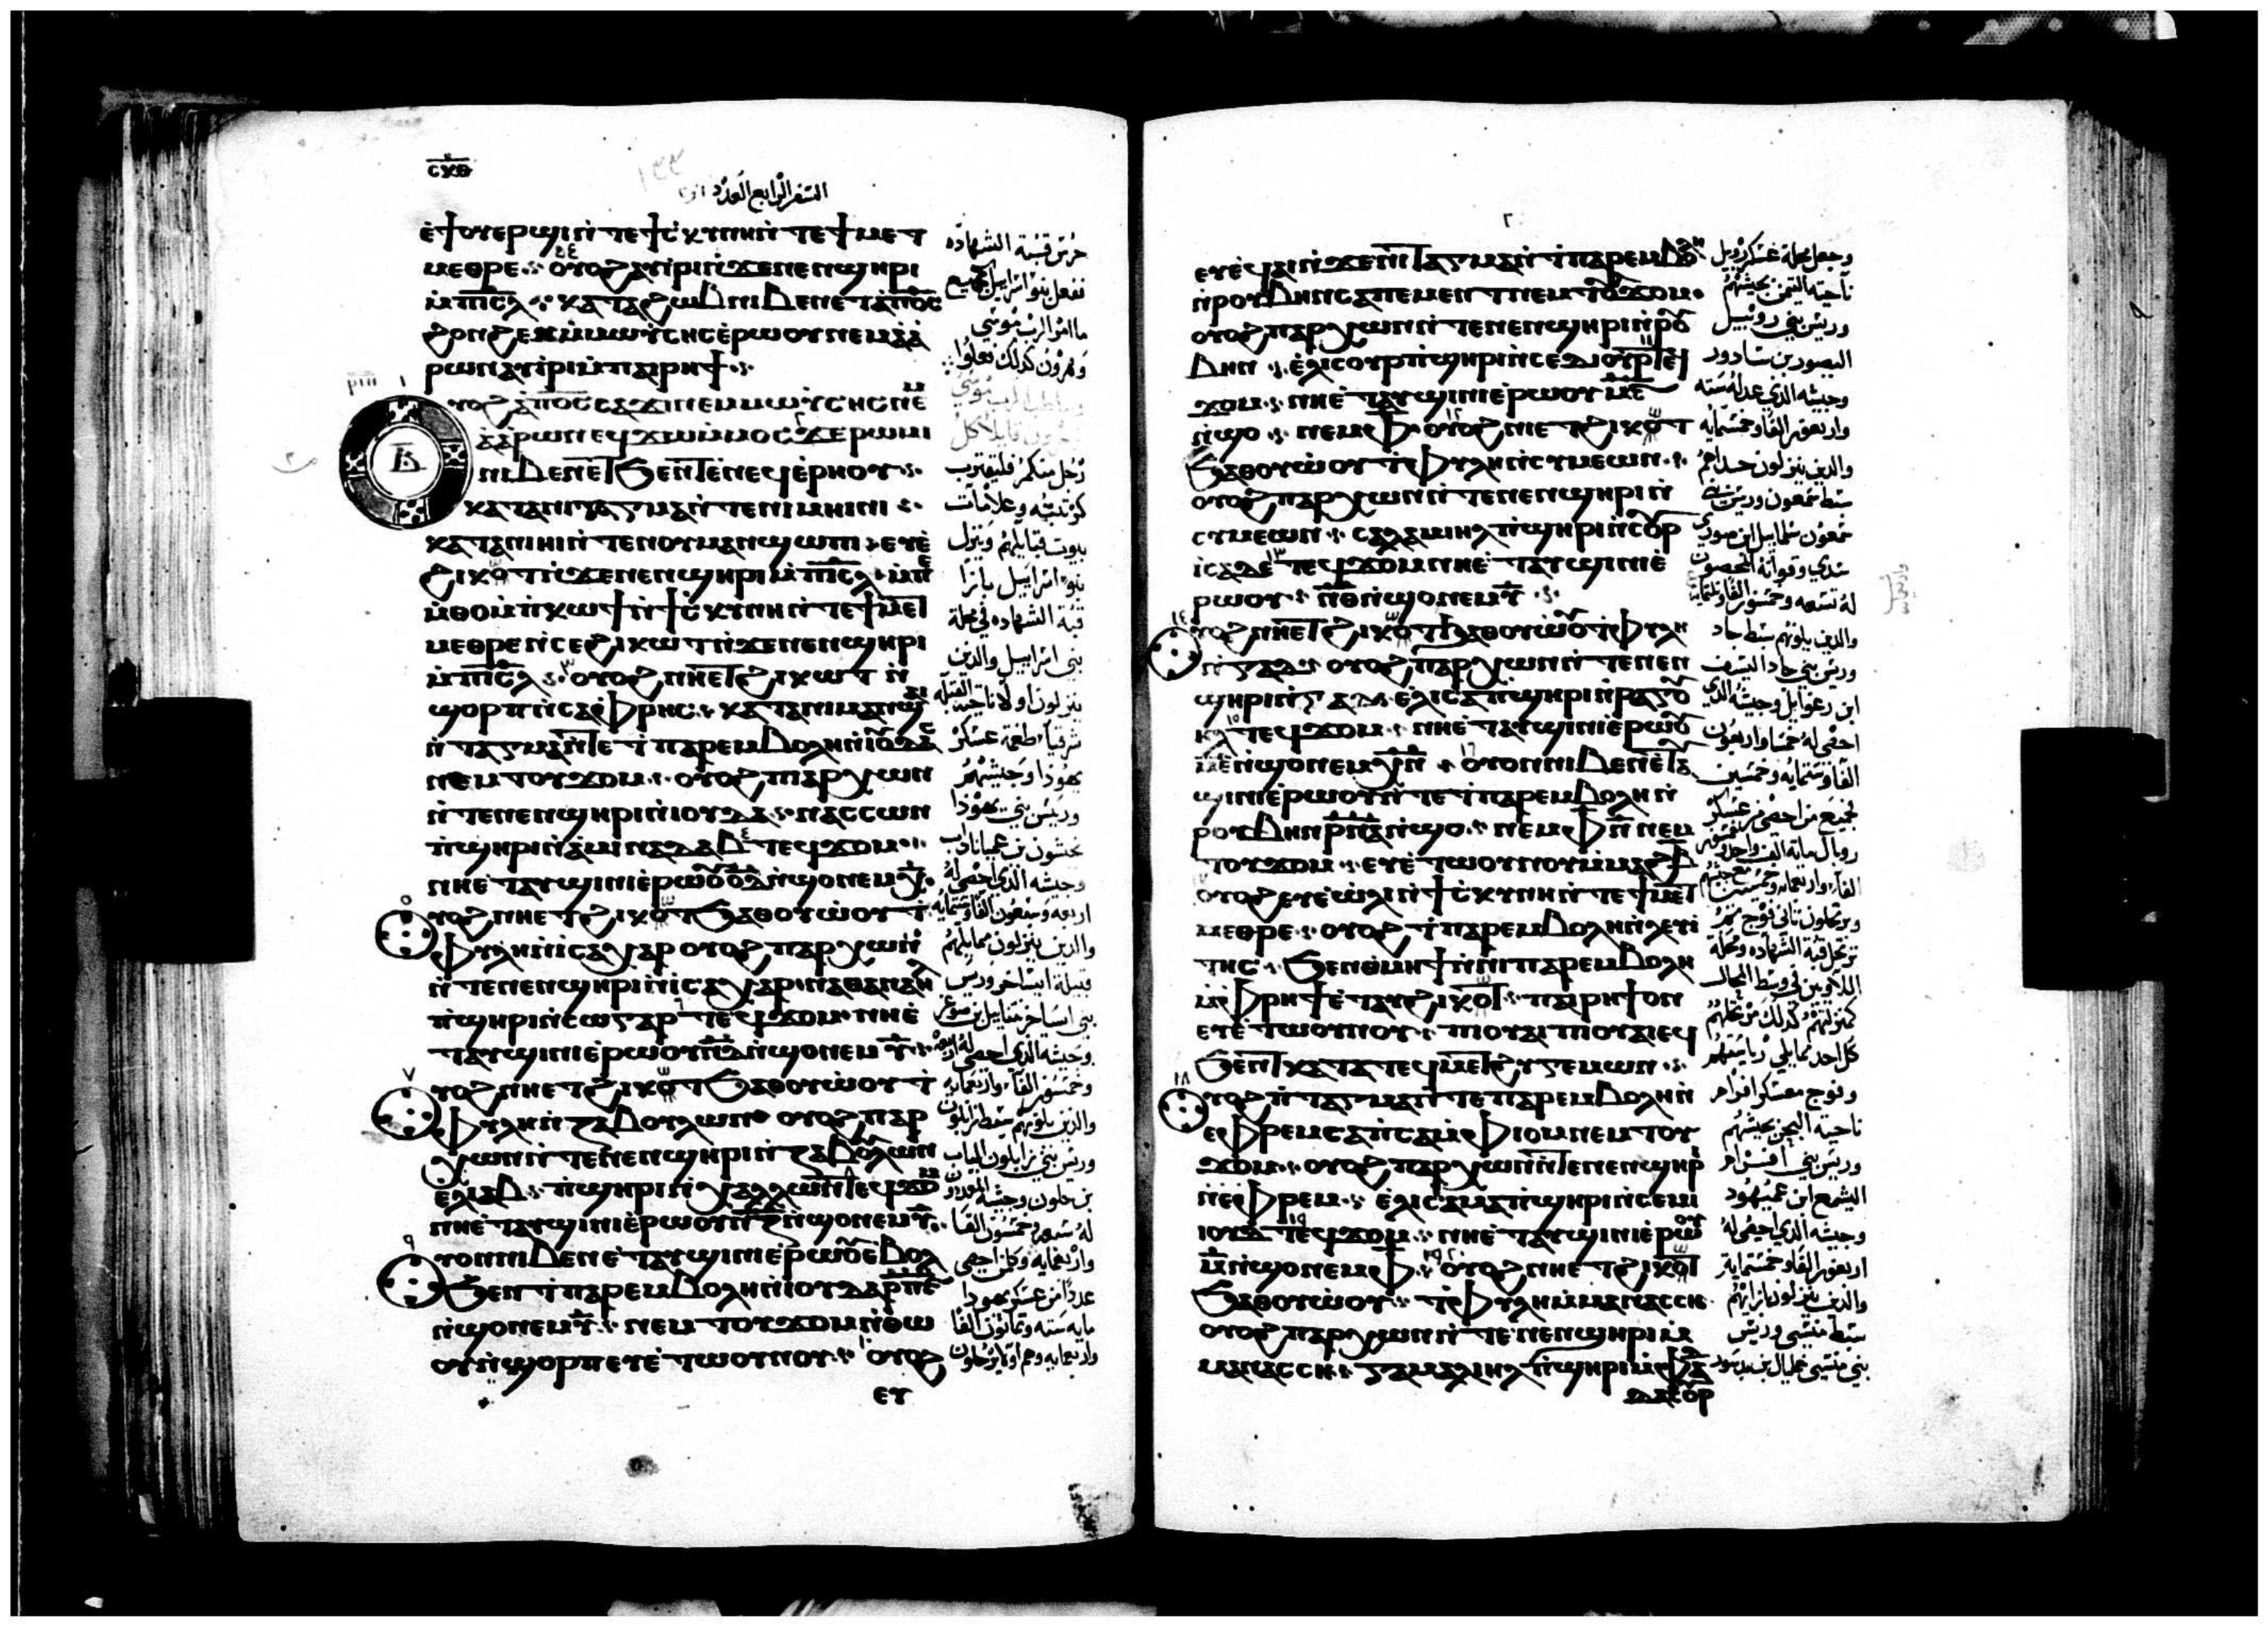 ⲥⲕⲑ
السفر الرابع العدد
ⲉϯⲟⲩⲉⲣϣⲓ ⲛ̀ⲧⲉ ϯⲥⲕⲩⲛⲏ ⲛ̀ⲧⲉ ϯⲙⲉⲧ
ⲙⲉⲑⲣⲉ ⲟⲩⲟϩ ⲁⲩⲓⲣⲓ ⲛ̀ϫⲉ ⲛⲉⲛϣⲏⲣⲓ
ⲙ̀ⲡⲓⲥⲗ ⲕⲁⲧⲁ ϩⲱⲃ ⲛⲓⲃⲉⲛ ⲉⲧⲁ ⲡⲟⲥ
ϩⲟⲛϩⲉⲛ ⲙ̀ⲙⲱⲩⲥⲏⲥ ⲉ̀ⲣⲱⲟⲩ ⲛⲉⲙ ⲁ̀ⲁ̀
ⲣⲱⲛ ⲁⲩⲓⲣⲓ ⲙ̀ⲡⲁⲓⲣⲏϯ
ⲩⲟϩ ⲁ̀ ⲡⲟⲥ ⲥⲁϫⲓ ⲛⲉⲙ ⲙⲱⲩⲥⲏⲥ ⲛⲉⲙ
ⲁ̀ⲁⲣⲱⲛ ⲉϥϫⲱ ⲙ̀ⲙⲟⲥ ϫⲉ ⲣⲱⲙⲓ
ⲛⲓⲃⲉⲛ ⲉⲧϧⲉⲛⲧ ⲉ̀ⲛⲉϥⲉ̀ⲣⲏⲟⲩ
ⲕⲁⲧⲁ ⲛⲓⲧⲁⲅⲙⲁ ⲛ̀ⲧⲉ ⲛⲓⲙⲏⲓⲛⲓ
ⲕⲁⲧⲁ ⲛⲓⲏⲓ ⲛ̀ⲧⲉ ⲛⲟⲩⲙⲁⲛϣⲱⲡⲓ ⲉⲩⲉ̀
ϩⲓⲕⲟⲧ ⲛ̀ϫⲉ ⲛⲉⲛϣⲏⲣⲓ ⲙ̀ⲡⲓⲥⲗ ⲙ̀ⲡⲉ
ⲙ̀ⲑⲟ ⲙ̀ⲡⲕⲱϯ ⲛ̀ϯⲥⲕⲩⲛⲏ ⲛ̀ⲧⲉ ϯⲙⲉⲧ
ⲙⲉⲑⲣⲉ ⲛ̀ⲥⲉϩⲓⲕⲱⲧ ⲛ̀ϫⲉ ⲛⲉⲛϣⲏⲣⲓ
ⲙ̀ⲡⲓⲥⲗ ⲟⲩⲟϩ ⲛⲏⲉⲧϩⲓⲕⲱⲧ ⲛ̀
ϣⲟⲣⲡ ⲛ̀ⲥⲁ ⲫⲣⲏⲥ ⲕⲁⲧⲁ ⲛⲓⲙⲁⲛϣⲁⲓ
ⲛ̀ⲧⲁⲅⲙⲁ ⲛ̀ⲧⲉ ϯⲡⲁⲣⲉⲙⲃⲟⲗⲏ ⲛ̀ⲓⲟⲩⲇⲁⲥ
ⲛⲉⲙ ⲧⲟⲩϫⲟⲙ ⲟⲩⲟϩ ⲡⲁⲣⲭⲱⲛ
ⲛ̀ⲧⲉ ⲛⲉⲛϣⲏⲣⲓ ⲛ̀ⲓⲟⲩⲇⲁ ⲛⲁⲥⲥⲱⲛ
ⲡ̀ϣⲏⲣⲓ ⲛ̀ⲁⲙⲓⲛⲁⲇⲁⲃ ⲧⲉϥϫⲟⲙ
ⲛⲏⲉ̀ⲧⲁⲩϣⲓⲛⲓ ⲉ̀ⲣⲱⲟⲩ ⲟⲇ ⲛ̀ϣⲟ ⲛⲉⲙ ⲭ
ⲩⲟϩ ⲛⲏⲉⲧϩⲓⲕⲟⲧ ϧⲁⲑⲟⲩⲱⲟⲩ ϯ
ⲫⲩⲗⲏ ⲛ̀ⲓⲥⲁⲭⲁⲣ ⲟⲩⲟϩ ⲡⲁⲣⲭⲱⲛ
ⲛ̀ⲧⲉ ⲛⲉⲛϣⲏⲣⲓ ⲛ̀ⲓⲥⲁⲭⲁⲣ ⲛⲁⲑⲁⲛⲁⲏⲗ
ⲡ̀ϣⲏⲣⲓ ⲛ̀ⲥⲱⲅⲁⲣ ⲧⲉϥϫⲟⲙ ⲛⲏⲉ̀
ⲧⲁⲩϣⲓⲛⲓ ⲉ̀ⲣⲱⲟⲩ ⲛⲇ ⲛ̀ϣⲟ ⲛⲉⲙ ⲩ
ⲩⲟϩ ⲛⲏⲉⲧϩⲓⲕⲟⲧ ϧⲁⲑⲟⲩⲱⲟⲩ ϯ
ⲫⲩⲗⲏ ⲛ̀ⲍⲁⲃⲟⲩⲗⲱⲛ ⲟⲩⲟϩ ⲡⲁⲣ
ⲭⲱⲛ ⲛ̀ⲧⲉ ⲛⲉⲛϣⲏⲣⲓ ⲛ̀ⲍⲁⲃⲟⲩⲗⲱⲛ
ⲉⲗⲓⲁⲃ ⲡ̀ϣⲏⲣⲓ ⲛ̀ⲭⲁⲗⲗⲱⲛ ⲧⲉϥϫⲟⲙ
ⲛⲏⲉ̀ⲧⲁⲩϣⲓⲛⲓ ⲉ̀ⲣⲱⲟⲩ ⲛⲍ ⲛ̀ϣⲟ ⲛⲉⲙ ⲩ
ⲩⲟⲛ ⲛⲓⲃⲉⲛ ⲉ̀ⲧⲁⲩϣⲓⲛⲓ ⲉ̀ⲣⲱⲟⲩ ⲉⲃⲟⲗ
ϧⲉⲛ ϯⲡⲁⲣⲉⲙⲃⲟⲗⲏ ⲛ̀ⲓⲟⲩⲇⲁ ⲣⲡⲋ
ⲛ̀ϣⲟ ⲛⲉⲙ ⲩ ⲛⲉⲙ ⲧⲟⲩϫⲟⲙ ⲛ̀ⲑⲱ
ⲟⲩ ⲛ̀ϣⲟⲣⲡ ⲉⲩⲉ̀ⲧⲱⲟⲩⲛⲟⲩ ⲟⲩⲟϩ
ⲉⲩ
حرس قبة الشهاده
ففعل بنو اسراييل كجميع
ما امر الرب موسي
وهرون كذلك فعلوا
رجل منكم فليقترب
كرتبته وعلامات
بيوت قبايلهم وينزل
بنو اسراييل بازا
قبة الشهاده في محلة
بني اسراييل والذين
ينزلون اولا ناحية القبله
شرقيا طغمة عسكر
يهوذا وجيشهم
وريس بني يهوذا
نحشون بن عميناداب
وجيشه الذي احصي له
اربعه وسبعون الفا وستمايه
والذين ينزلون مما يليهم
قبيلة ايساخر وريس
وجيشه الذي احصي له
وخمسون الفا واربعمايه
والذين يلونهم سبط زابلون
وريس بني زابلون الياب
بن حلون وجيشه
له سبعه وخمسون الفا
واربعمايه وكل من احصي
عددا من عسكر يهودا
مايه سته وثمانون الفا
ⲉⲩⲉ̀ϥⲁⲓ ⲛ̀ϫⲉ ⲛⲓⲧⲁⲅⲙⲁ ⲛ̀ϯⲡⲁⲣⲉⲙⲃⲟⲗⲏ
ⲛ̀ⲣⲟⲩⲃⲏⲛ ⲥⲁⲡⲉⲙⲉⲛⲧ ⲛⲉⲙ ⲧⲟⲩϫⲟⲙ
ⲟⲩⲟϩ ⲡⲁⲣⲭⲱⲛ ⲛ̀ⲧⲉ ⲛⲉⲛϣⲏⲣⲓ ⲛ̀ⲣⲟⲩ
ⲃⲏⲛ ⲉⲗⲓⲥⲟⲩⲣ ⲡ̀ϣⲏⲣⲓ ⲛ̀ⲥⲉⲇⲓⲟⲩⲣ ⲧⲉϥ
ϫⲟⲙ ⲛⲏⲉ̀ⲧⲁⲩϣⲓⲛⲓ ⲉ̀ⲣⲱⲟⲩ ⲙⲋ
ⲛ̀ϣⲟ ⲛⲉⲙ ⲫ ⲟⲩⲟϩ ⲛⲏⲉⲧϩⲓⲕⲟⲧ
ϧⲁⲑⲟⲩⲱⲟⲩ ϯⲫⲩⲗⲏ ⲛ̀ⲥⲩⲙⲉⲱⲛ
ⲟⲩⲟϩ ⲡⲁⲣⲭⲱⲛ ⲛ̀ⲧⲉ ⲛⲉⲛϣⲏⲣⲓ ⲛ̀
ⲥⲩⲙⲉⲱⲛ ⲥⲁⲗⲁⲙⲓⲏⲗ ⲡ̀ϣⲏⲣⲓ ⲛ̀ⲥⲟⲩⲣ
ⲓⲥⲁⲇⲉ ⲧⲉϥϫⲟⲙ ⲛⲏⲉ̀ⲧⲁⲩϣⲓⲛⲓ ⲉ̀
ⲣⲱⲟⲩ ⲛⲑ ⲛ̀ϣⲟ ⲛⲉⲙ ⲧ
ⲩⲟϩ ⲛⲏⲉⲧϩⲓⲕⲟⲧ ϧⲁⲑⲟⲩⲱⲟⲩ ϯⲫⲩⲗⲏ
ⲛ̀ⲅⲁⲇ ⲟⲩⲟϩ ⲡⲁⲣⲭⲱⲛ ⲛ̀ⲧⲉ ⲛⲉⲛ
ϣⲏⲣⲓ ⲛ̀ⲅⲁⲇ ⲉⲗⲓⲥⲁ ⲡ̀ϣⲏⲣⲓ ⲛ̀ⲣⲁⲅⲟⲩ
ⲏⲗ ⲧⲉϥϫⲟⲙ ⲛⲏⲉ̀ⲧⲁⲩϣⲓⲛⲓ ⲉ̀ⲣⲱⲟⲩ
ⲙⲉ ⲛ̀ϣⲟ ⲛⲉⲙ ⲭⲛ ⲟⲩⲟⲛ ⲛⲓⲃⲉⲛ ⲉ̀ⲧⲁⲩ
ϣⲓⲛⲓ ⲉ̀ⲣⲱⲟⲩ ⲛ̀ⲧⲉ ϯⲡⲁⲣⲉⲙⲃⲟⲗⲏ ⲛ̀
ⲣⲟⲩⲃⲏⲛ ⲣⲛⲁ ⲛ̀ϣⲟ ⲛⲉⲙ ⲩⲛ ⲛⲉⲙ
ⲧⲟⲩϫⲟⲙ ⲉⲩⲉ̀ⲧⲱⲟⲩⲛⲟⲩ ⲙ̀ⲙⲁϩ ⲃ
ⲟⲩⲟϩ ⲉⲩⲉ̀ⲱⲗⲓ ⲛ̀ϯⲥⲕⲩⲛⲏ ⲛ̀ⲧⲉ ϯⲙⲉⲧ
ⲙⲉⲑⲣⲉ ⲟⲩⲟϩ ϯⲡⲁⲣⲉⲙⲃⲟⲗⲏ ⲛ̀ⲗⲉⲩⲓ
ⲧⲏⲥ ϧⲉⲛ ⲑⲙⲏϯ ⲛ̀ⲛⲓⲡⲁⲣⲉⲙⲃⲟⲗⲏ
ⲙ̀ⲫⲣⲏϯ ⲉ̀ⲧⲁⲩϩⲓⲕⲟⲧ ⲡⲁⲓⲣⲏϯ ⲟⲛ
ⲉⲩⲉ̀ⲧⲱⲟⲩⲛⲟⲩ ⲡⲓⲟⲩⲁⲓ ⲡⲓⲟⲩⲁⲓ ⲉϥ
ϧⲉⲛⲧ ⲕⲁⲧⲁ ⲧⲉϥⲙⲉⲧϩⲩⲅⲉⲙⲱⲛ
ⲩⲟϩ ⲡ̀ⲧⲁⲅⲙⲁ ⲛ̀ⲧⲉ ⲡⲁⲣⲉⲙⲃⲟⲗⲏ ⲛ̀
ⲉⲫⲣⲉⲙ ⲥⲁⲡⲥⲁ ⲙ̀ⲫⲓⲟⲙ ⲛⲉⲙ ⲧⲟⲩ
ϫⲟⲙ ⲟⲩⲟϩ ⲡⲁⲣⲭⲱⲛ ⲛ̀ⲧⲉ ⲛⲉⲛϣⲏⲣⲓ
ⲛ̀ⲉⲫⲣⲉⲙ ⲉⲗⲓⲥⲁⲙⲁ ⲡ̀ϣⲏⲣⲓ ⲛ̀ⲥⲉⲙⲓ
ⲟⲩⲇ ⲧⲉϥϫⲟⲙ ⲛⲏⲉ̀ⲧⲁⲩϣⲓⲛⲓ ⲉ̀ⲣⲱⲟⲩ
ⲙ ⲛ̀ϣⲟ ⲛⲉⲙ ⲫ ⲟⲩⲟϩ ⲛⲏⲉⲧϩⲓⲕⲟⲧ
ϧⲁⲑⲟⲩⲱⲟⲩ ϯⲫⲩⲗⲏ ⲙ̀ⲙⲁⲛⲁⲥⲥⲏ
ⲟⲩⲟϩ ⲡⲁⲣⲭⲱⲛ ⲛ̀ⲧⲉ ⲛⲉⲛϣⲏⲣⲓ ⲙ̀
ⲙⲁⲛⲁⲥⲥⲏ ⲅⲁⲙⲁⲗⲓⲏⲗ ⲡ̀ϣⲏⲣⲓ ⲙ̀ⲫⲁ
ⲇⲁⲥⲟⲩⲣ
وجعل محلة عسكر روبيل
ناحية اليمن بجيشهم
وريس بني روبيل
اليصور بن شادور
وجيشه الذي عد له سته
واربعون الفا وخمسمايه
سبط شمعون وريس بني
والذين يلونهم سبط جاد
وريس بني جاد اليسف
ابن رعوايل وجيشه الذي
احصي له خمسا واربعون
الفا وستمايه وخمسين
لجميع من احصي من عسكر
ترتحل قبة الشهاده ومحلة
اللاويين في وسط المحال
وفوج معسكر افرام
ناحية البحر بجيشهم
وريس بني افرام
اليشمع ابن عميهود
وجيشه الذي احصي له
اربعون الفا وخمسمايه
والذين ينزلون بازايهم
سبط منسي وريس